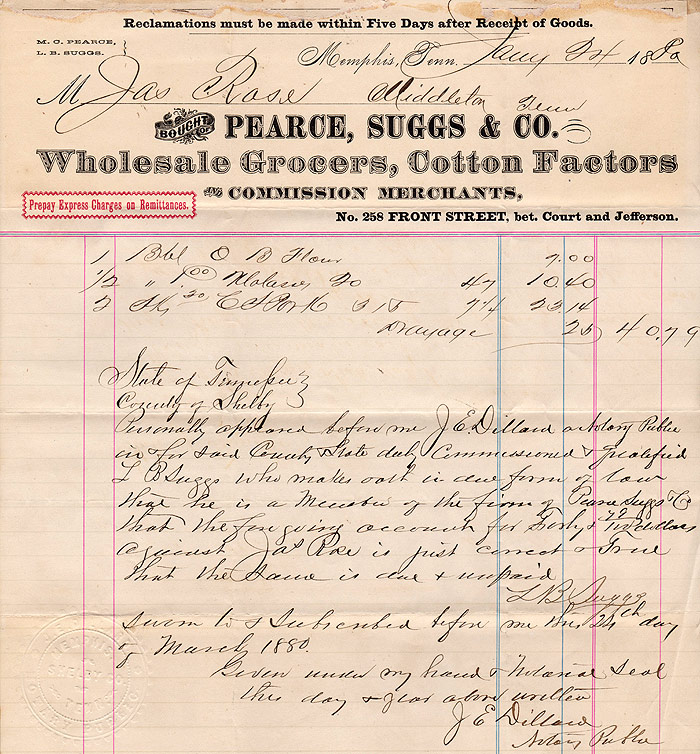 Reclamations must be made within Five Days after Receipt of Goods.
M. C. PEARCE,
L. B. SUGGS.
Memphis, Tenn. Jany 24 1880
M Jas Rose Middleton Tenn
BOUGHT OF PEARCE, SUGGS & CO.
Wholesale Grocers, Cotton Factors
AND COMMISSION MERCHANTS,
Prepay Express Charges on Remittances.
No. 258 FRONT STREET, bet. Court and Jefferson.
1 Bbl O B Flour 7.00
1/2 " 1 00 Molasses 20 47 10.40
2 20 C S Pork 315 7¼ 23.14
Drayage 25 40.79
State of Tennessee
County of Shelby
Personally appeared before me J. E. Dillard a Notary Public
in & for said County & State duly Commissioned & qualified
L B Suggs who makes oath in due form of law
that he is a Member of the firm of Pearce Suggs & Co
that the foregoing account for Forty & 79/100 dollars
against Jas Rose is just correct & True
that the same is due & unpaid
L. B. Suggs
sworn to & Subscribed before me this 24th day
of March 1880.
Given under my hand & Notarial Seal
this day & year above written
J E Dillard
Notary Public